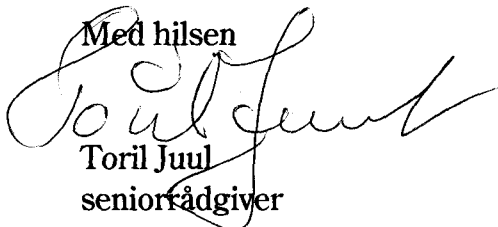 Med hilsen
Toril Juul
Toril Juul
seniorrådgiver